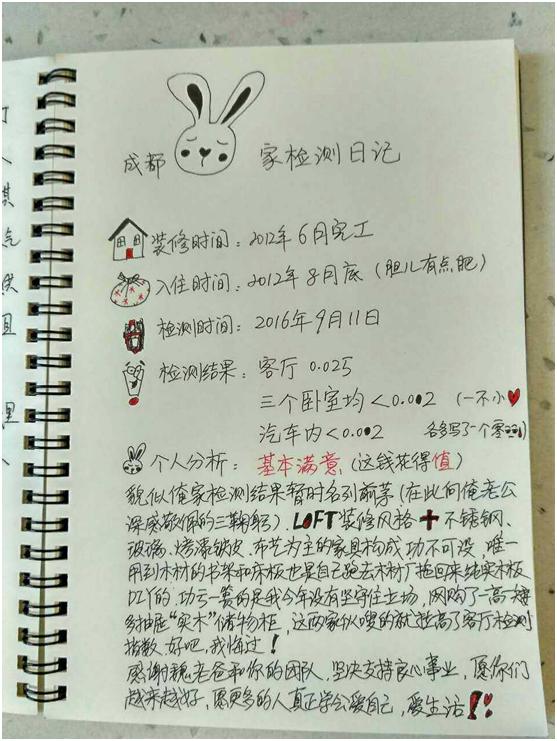 成都 家检测日记
装修时间：2012年6月完工
入住时间：2012年8月底（胆儿有点肥）
检测时间：2016年9月11日
检测结果：客厅 0.025
三个卧室均<0.002 （一不小
汽车内<0.002 各多写了一个零
个人分析：基本满意（这钱花得值）
貌似俺家检测结果暂时名列前茅（在此向俺老公
深感敬佩的三鞠躬）．LOFT装修风格＋不锈钢、
玻璃、烤漆钣皮、布艺为主的家具构成功不可没．唯一
用到木材的书架和床板也是自己跑去木材厂拖回来纯实木板
DIY的．功亏一篑的是我今年没有坚守住立场，网购了一高一矮
多抽屉“实木”储物柜，这两家伙嗖的就拉高了客厅检测
指数．好吧，我悔过！
感谢魏老爸和你的团队．坚决支持良心事业，愿你们
越来越好，愿更多的人真正学会爱自己，爱生活！